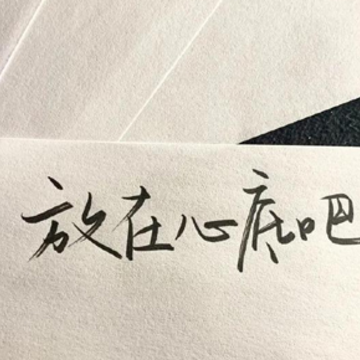 放在心底吧